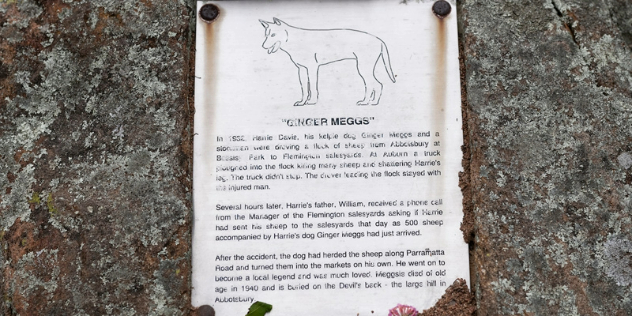 "GINGER MEGGS"
In 1932 Harrie Davis, his kelpie dog Ginger Meggs and a
stockman were droving a flock of sheep from Abbotsbury at
Park to Flemington salesyards. At Auburn a truck
ploughed into the flock killing many sheep and shattering Harrie's
leg. The truck didn't stop. The drover leading the flock stayed with
the injured man.
Several hours later, Harrie's father, William, received a phone call
from the Manager of the Flemington salesyards asking if Harrie
had sent his sheep to the salesyards that day as 500 sheep
accompanied by Harrie's dog Ginger Meggs had just arrived.
After the accident, the dog had herded the sheep along Parramatta
Road and turned them into the markets on his own. He went on to
become a local legend and was much loved. Meggsie died of old
age in 1940 and is buried on the Devil's back - the large hill in
Abbotsbury.